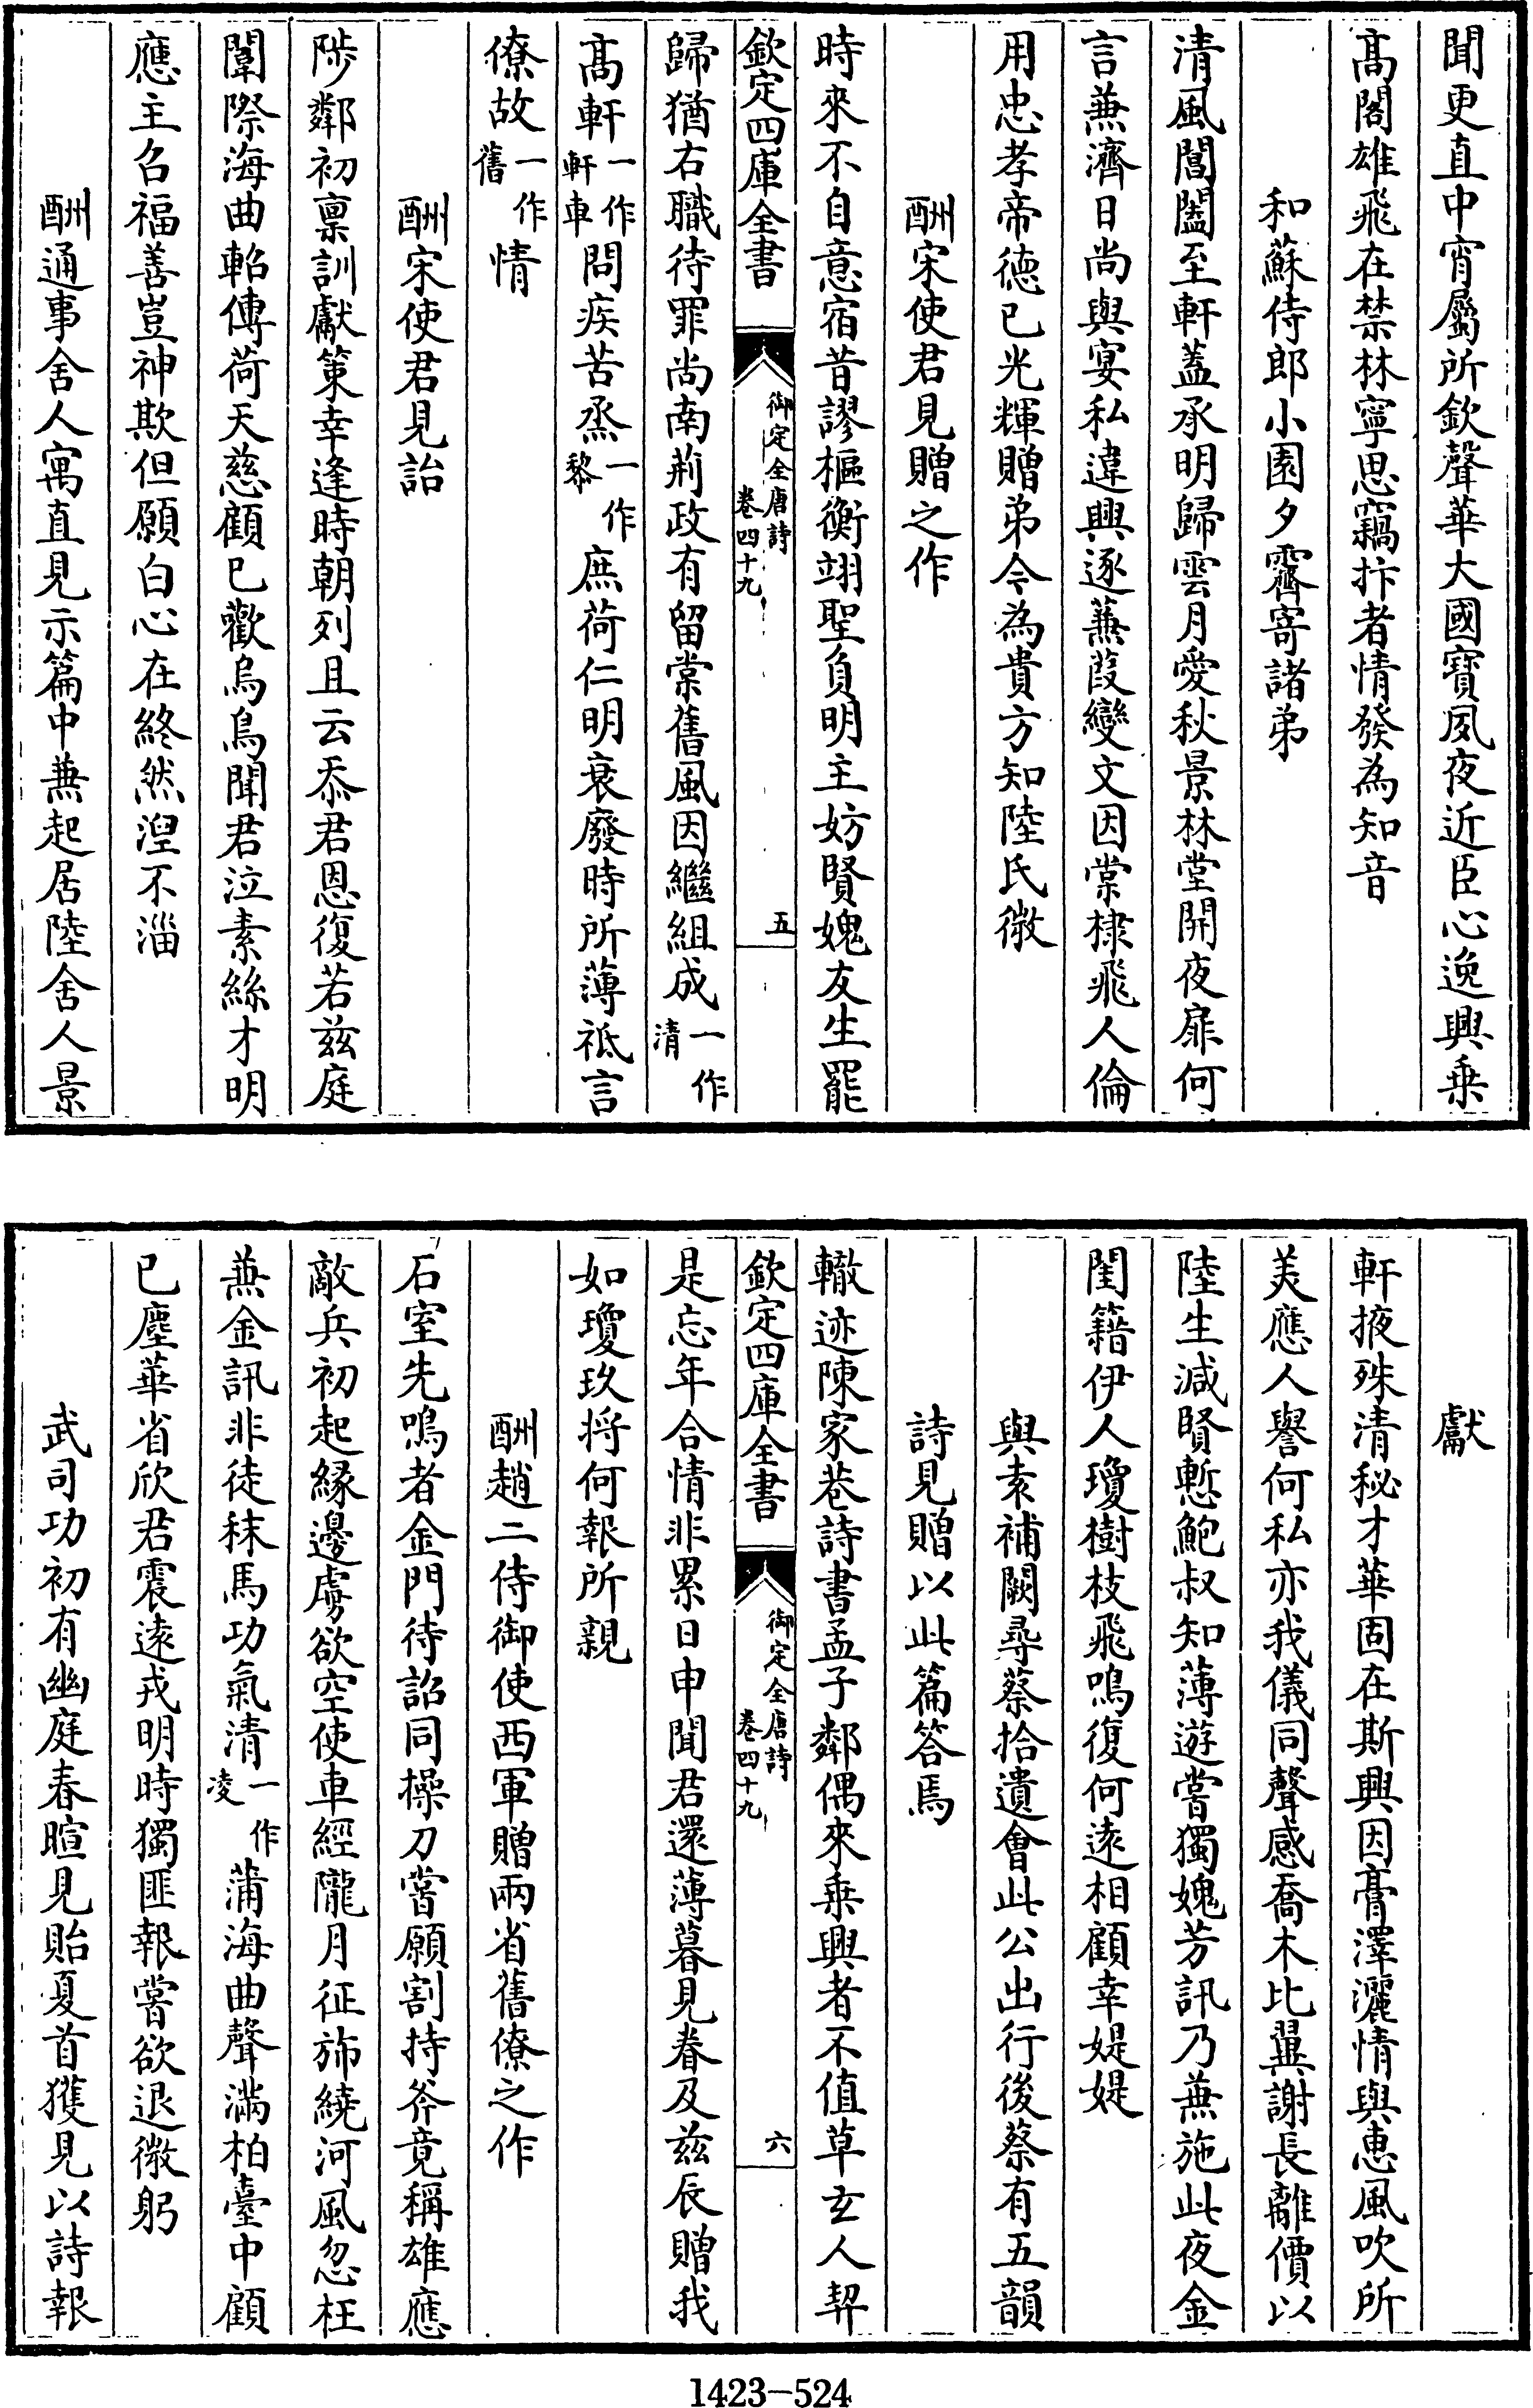 聞更直中宵屬所欽聲華大國寳夙夜近臣心逸興乗
髙閣雄飛在禁林寧思竊抃者情發為知音
和蘇侍郎小園夕霽寄諸弟
清風閶闔至軒蓋承明歸雲月愛秋景林堂開夜扉何
言兼濟日尚與宴私違興逐蒹葭變文因棠棣飛人倫
用忠孝帝德已光輝贈弟令為貴方知陸氏微
酬宋使君見贈之作
時來不自意宿昔謬樞衡翊聖負明主妨賢媿友生罷
欽定四庫全書
御定全唐詩
卷四十九
五
歸猶右職待罪尚南荆政有留棠舊風因繼組成一作清
髙軒一作軒車問疾苦烝一作黎庶荷仁明衰廢時所薄祗言
僚故一作舊情
酬宋使君見詒
陟鄰初禀訓獻策幸逢時朝列且云忝君恩復若兹庭
闈際海曲軺傳荷天慈顧已歡烏鳥聞君泣素絲才明
應主召福善豈神欺但願白心在終然涅不淄
酬通事舍人寓直見示篇中兼起居陸舍人景
獻
軒掖殊清秘才華固在斯興因膏澤灑情與惠風吹所
美應人譽何私亦我儀同聲感喬木比翼謝長離價以
陸生減賢慙鮑叔知薄遊嘗獨媿芳訊乃兼施此夜金
閨籍伊人瓊樹枝飛鳴復何逺相顧幸媞媞
與袁補闕尋蔡拾遺會此公出行後蔡有五韻
詩見贈以此篇答焉
轍迹陳家巷詩書孟子鄰偶來乗興者不值草玄人契
欽定四庫全書
御定全唐詩
卷四十九
六
是忘年合情非累日申聞君還薄暮見眷及兹辰贈我
如瓊玖将何報所親
酬趙二侍御使西軍贈兩省舊僚之作
石室先鳴者金門待詔同操刀嘗願割持斧竟稱雄應
敵兵初起縁邊虜欲空使車經隴月征斾繞河風忽枉
兼金訊非徒秣馬功氣清一作凌蒲海曲聲滿柏臺中顧
已塵華省欣君震逺戎明時獨匪報嘗欲退微躬
武司功初有幽庭春暄見貽夏首獲見以詩報
1423-524